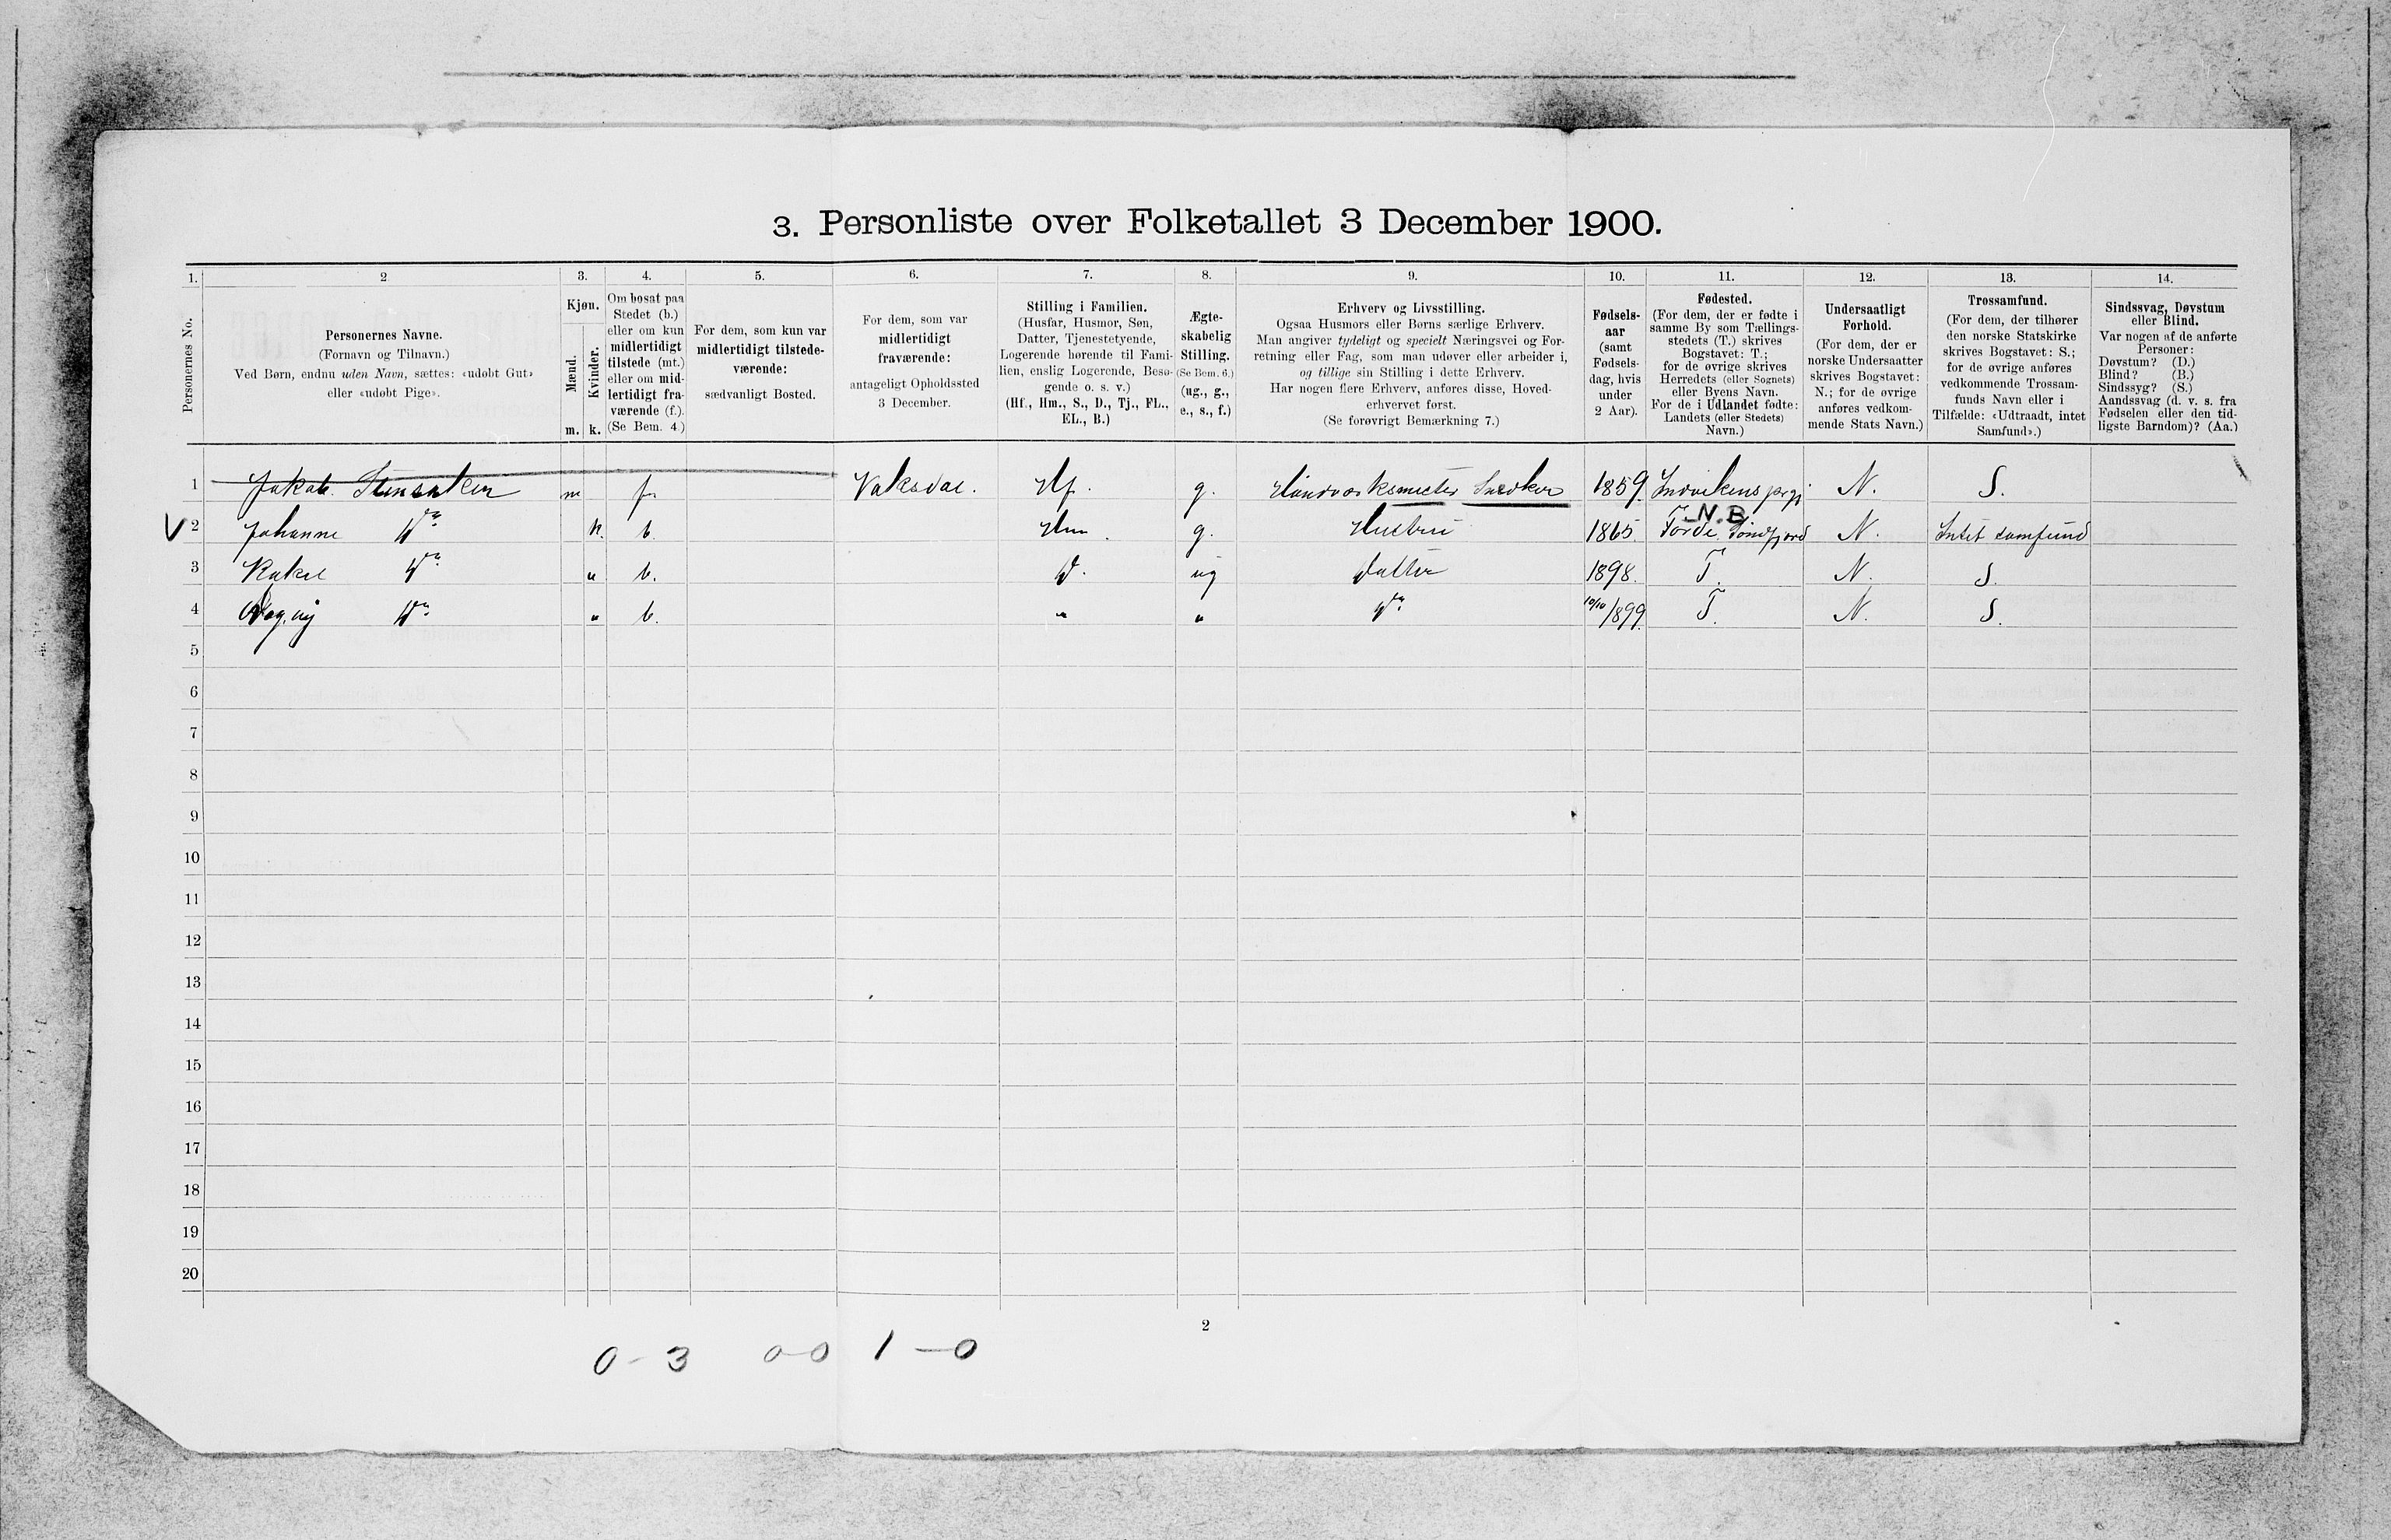 3. Personliste over Folketallet 3 December 1900.
1. 2 3. 4. 5. 6. 7. 8. 9. 10. 11. 12. 13. 14.
Personernes No.
Personernes Navne.
(Fornavn og Tilnavn.)
Ved Børn, endnu uden Navn, sættes: «udøbt Gut»
eller «udøbt Pige».
Kjøn.
Mænd.
Kvinder.
m. k.
Om bosat paa
Stedet (b.)
eller om kun
midlertidigt
tilstede (mt.)
eller om mid-
lertidigt fra-
værende (f.).
(Se Bem. 4.)
For dem, som kun var
midlertidigt tilstede-
værende:
sædvanligt Bosted.
For dem, som var
midlertidigt
fraværende:
antageligt Opholdssted
3 December.
Stilling i Familien.
(Husfar, Husmor, Søn,
Datter, Tjenestetyende,
Logerende hørende til Fami-
lien, enslig Logerende, Besø-
gende o. s. v.)
(Hf., Hm., S., D., Tj., FL.,
EL., B.)
Ægte-
skabelig
Stilling.
(Se Bem. 6.)
(ug., g.,
e., s., f.)
Erhverv og Livsstilling.
Ogsaa Husmors eller Børns særlige Erhverv.
Man angiver tydeligt og specielt Næringsvei og For-
retning eller Fag, som man udøver eller arbeider i,
og tillige sin Stilling i dette Erhverv.
Har nogen flere Erhverv, anføres disse, Hoved-
erhvervet først.
(Se forøvrigt Bemærkning 7.)
Fødsels-
aar
(samt
Fødsels-
dag, hvis
under
2 Aar).
Fødested.
(For dem, der er fødte i
samme By som Tællings-
stedets (T.) skrives
Bogstavet: T.;
for de øvrige skrives
Herredets (eller Sognets)
eller Byens Navn.
For de i Udlandet fødte:
Landets (eller Stedets)
Navn.)
Undersaatligt
Forhold.
(For dem, der er
norske Undersaatter
skrives Bogstavet:
N.; for de øvrige
anføres vedkom-
mende Stats Navn.)
Trossamfund.
(For dem, der tilhører
den norske Statskirke
skrives Bogstavet: S.;
for de øvrige anføres
vedkommende Trossam-
funds Navn eller i
Tilfælde: «Udtraadt, intet
Samfund».)
Sindssvag, Døvstum
eller Blind.
Var nogen af de anførte
Personer:
Døvstum? (D.)
Blind? (B.)
Sindssyg? (S.)
Aandssvag (d. v. s. fra
Fødselen eller den tid-
ligste Barndom)? (Aa.)
1 Jakob. Stensaker m f. Vaksdal. Hf. g. Haandværksmester Snedker 1859 N. S.
N.B
V 2 Johanne Do k. b. Hm. g. Hustru 1865. Førde Søndfjord N. Intet samfund
3 Rakel Do " b. D. ug Datter 1898. T. N. S.
4 Do " b. " " Do 10/10 1899. T. N. S.
5
6
7
8
9
10
11
12
13
14
15
16
17
18
19
20
2
0 - 3 0-0 1 — 0